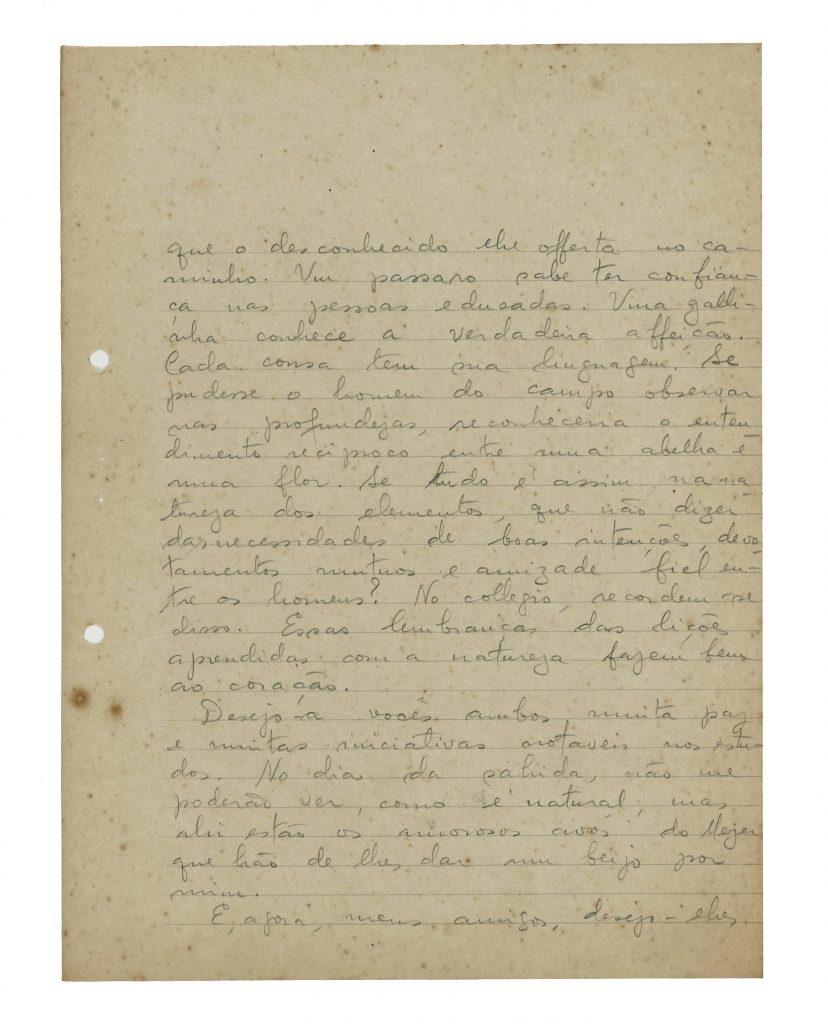 que o desconhecido lhe offerta no ca-
minho. Um passaro sabe ter confian-
ça nas pessoas educadas. Uma galli-
nha conhece a verdadeira affeição.
Cada cousa tem sua linguagem. Se
pudesse o homem do campo observar
nas profundezas, reconheceria o enten
dimento reciproco entre uma abelha e
uma flor. Se tudo é assim na na
tureza dos elementos, que não dizer
das necessidades de boas intenções, devo
tamentos mutuos e amizade fiel en-
tre os homens? No collegio, recordem-se
disso. Essas lembranças das lições
aprendidas com a natureza fazem bem
ao coração.
Desejo-a vocês ambos muita paz
e muitas iniciativas notaveis nos estu-
dos. No dia da sahida, não me
poderão ver, como é natural, mas
ahi estão os amorosos avós do Meyer
que hão de lhes dar um beijo por
mim.
E, agora, meus amigos, desejo-lhes